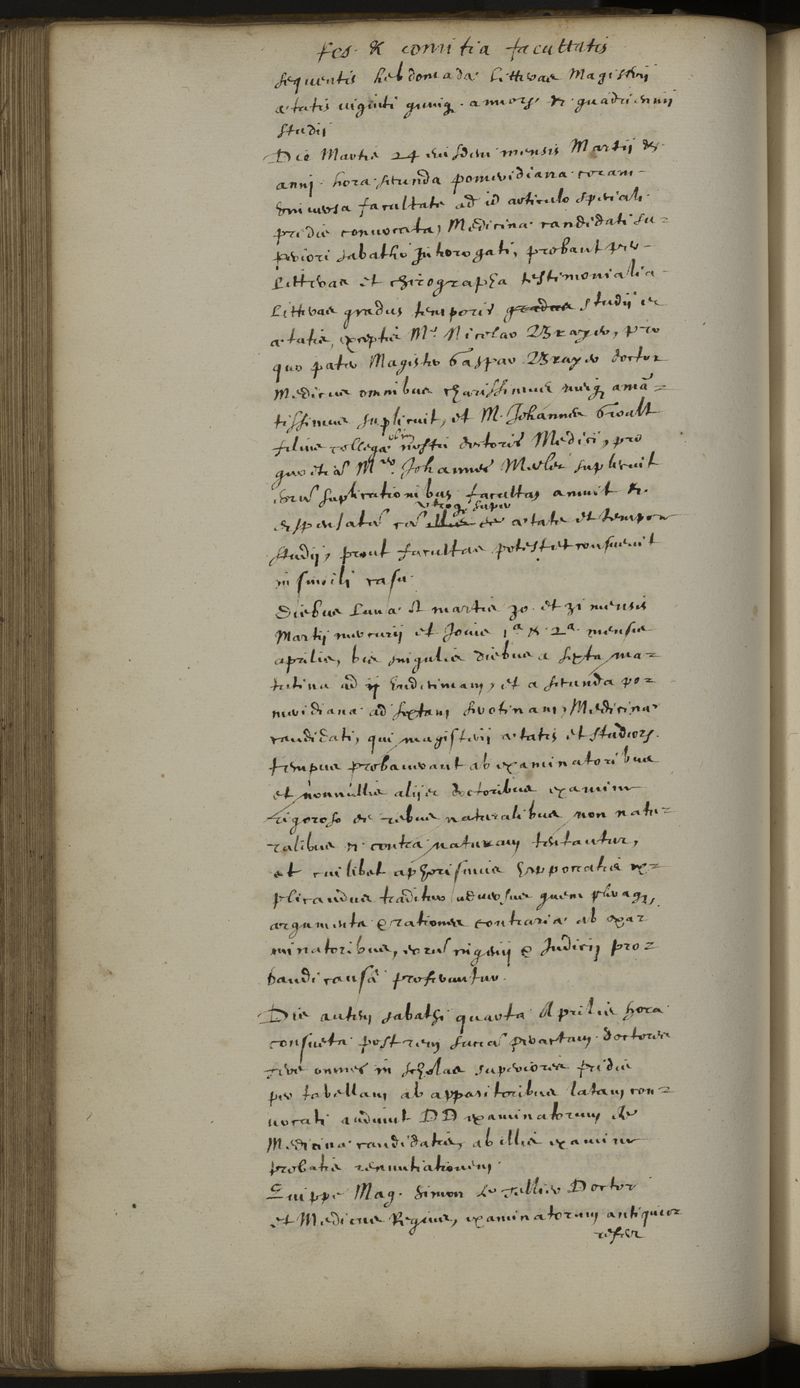 Res & comitia facultatis
sequentis hebdomadae litteras Magisterii
aetatis viginti quinq. annorum & quadriennii
studii
Die Martis 24 eiusdem mensis Martii &
anni hora secunda pomeridiana coram
universa facultate ad id articulo speciali
pridie convocata, Medicinae candidati su=
periori sabatho interrogati, probant per
litteras et chirographa testimonialia
litteras gradus temporis gradus studii et
aetatis, exceptis Mro Nicolao Brayer, pro
quo pater Magister Gaspar Brayer doctor
Medicus omnibus charissimus meiq; aman=
tissimus suplicuit, et M. Johannes Goalt
filius collegae olim nostri doctoris Medici, pro
quo etiam Mer Johannes Merlet suplicuit
eorum suplicationibus facultas annuit &
dispensatum cum illis utroq; super de aetate et tempore
studii, prout facultas potest et consuevit
in simili casu.
Diebus Lunae & martis 30 et 31 mensis
Martii mercurii et Jovis 1a & 2a mensis
aprilis, bis singulis diebus a sexta ma=
tutina ad undecimam, et a secunda po=
meridiana ad sextam serotinam, Medicinae
candidati, qui magisterii aetatis et studiorum
tempus probaverant ab examinatoribus
et nonnullis aliis doctoribus examine
rigoroso de rebus naturalibus non natu=
ralibus & contra naturam tentantur,
et cuilibet aphorismus hippocratis ex=
plicandus traditur adversus quem
argumenta & rationes contrariae ab exa
minatoribus, eorum ingenii & Judicii pro=
bandi causa proferuntur.
Die autem sabathi quarta Aprilis hora
consueta post rem sacram peractam doctores
fere omnes in scholas superiores pridie
per tabellam ab apparitoribus latam con=
vocati audiunt DD examinatorum de
Medicinae candidatis, ab illis examine
probatis renuntiationem.
Quippe Mag. Simon le Tellier Doctor
et Medicus Regius, examinatorum antiquior
refert